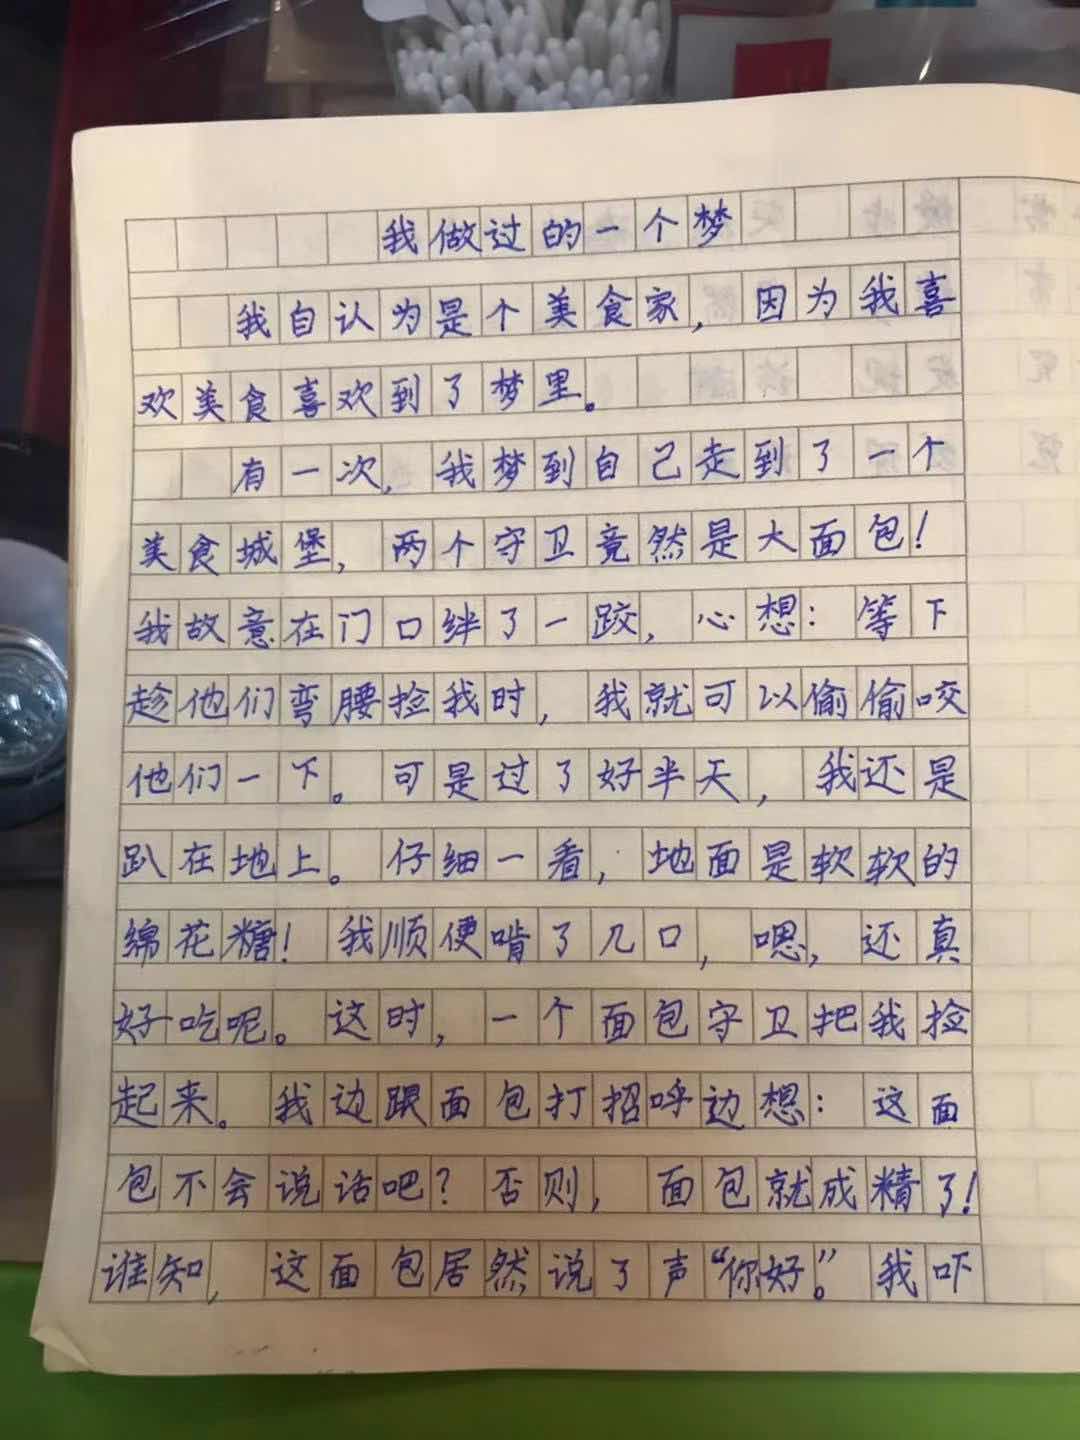 我做过的一个梦
我自认为是个美食家，因为我喜
欢美食喜欢到了梦里。
有一次，我梦到自己走到了一个
美食城堡，两个守卫竟然是大面包！
我故意在门口绊了一跤，心想：等下
趁他们弯腰捡我时，我就可以偷偷咬
他们一下。可是过了好半天，我还是
趴在地上。仔细一看，地面是软软的
绵花糖！我顺便啃了几口，嗯，还真
好吃呢。这时，一个面包守卫把我捡
起来。我边跟面包打招呼边想：这面
包不会说话吧？否则，面包就成精了！
谁知，这面包居然说了声“你好”。我吓